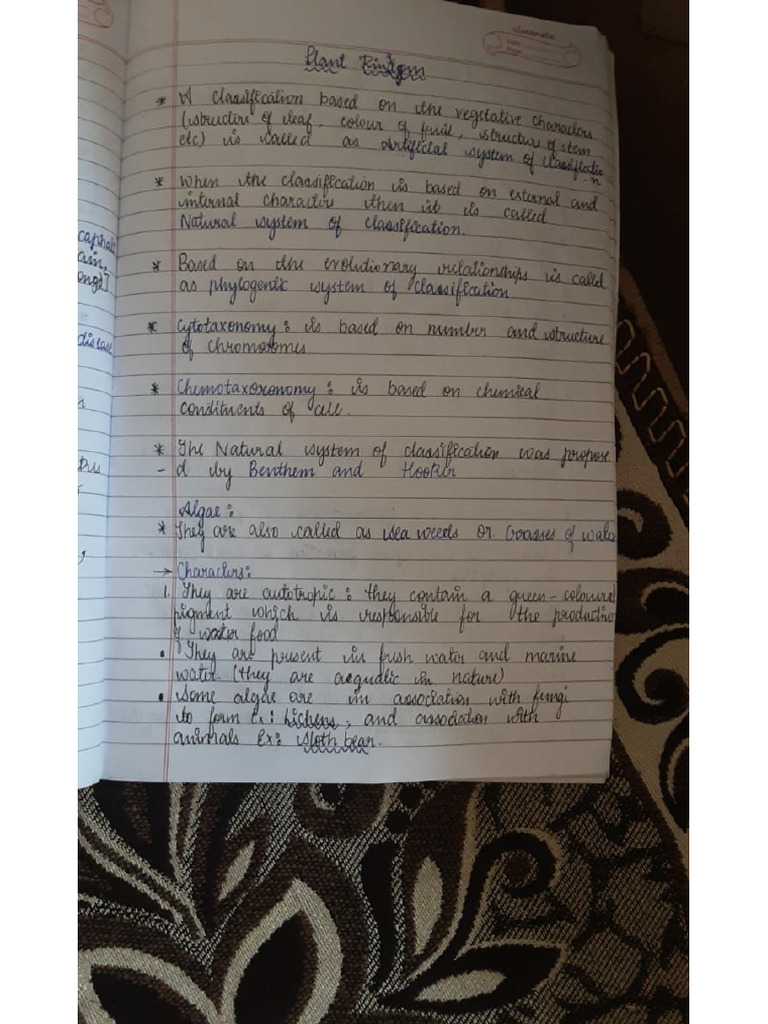 classmate
Date
Page
Plant Kingdom
* A classification based on the vegetative characters
(structure of leaf, colour of fruit, structure of stem
etc) is called as Artificial system of classificatio
n
* When the classification is based on external and
internal character then it is called
Natural system of classification.
* Based on the evolutionary relationships is called
as phylogentic system of classification
* Cytotaxonomy : is based on number and structure
of chromosomes
* Chemotaxoxonomy : is based on chemical
conditments of cell.
* The Natural system of classification was propose
- d by Benthem and Hooker
Algae :
* They are also called as sea weeds or Grasses of water
→ Characters :
1. They are autotropic : they contain a green-coloured
pigment which is responsible for the productio
of food
• They are present in fresh water and marine
water. (they are aequatic in nature)
• Some algae are in association with fungi
to form Ex : lichens, and association with
animals Ex : sloth bear.